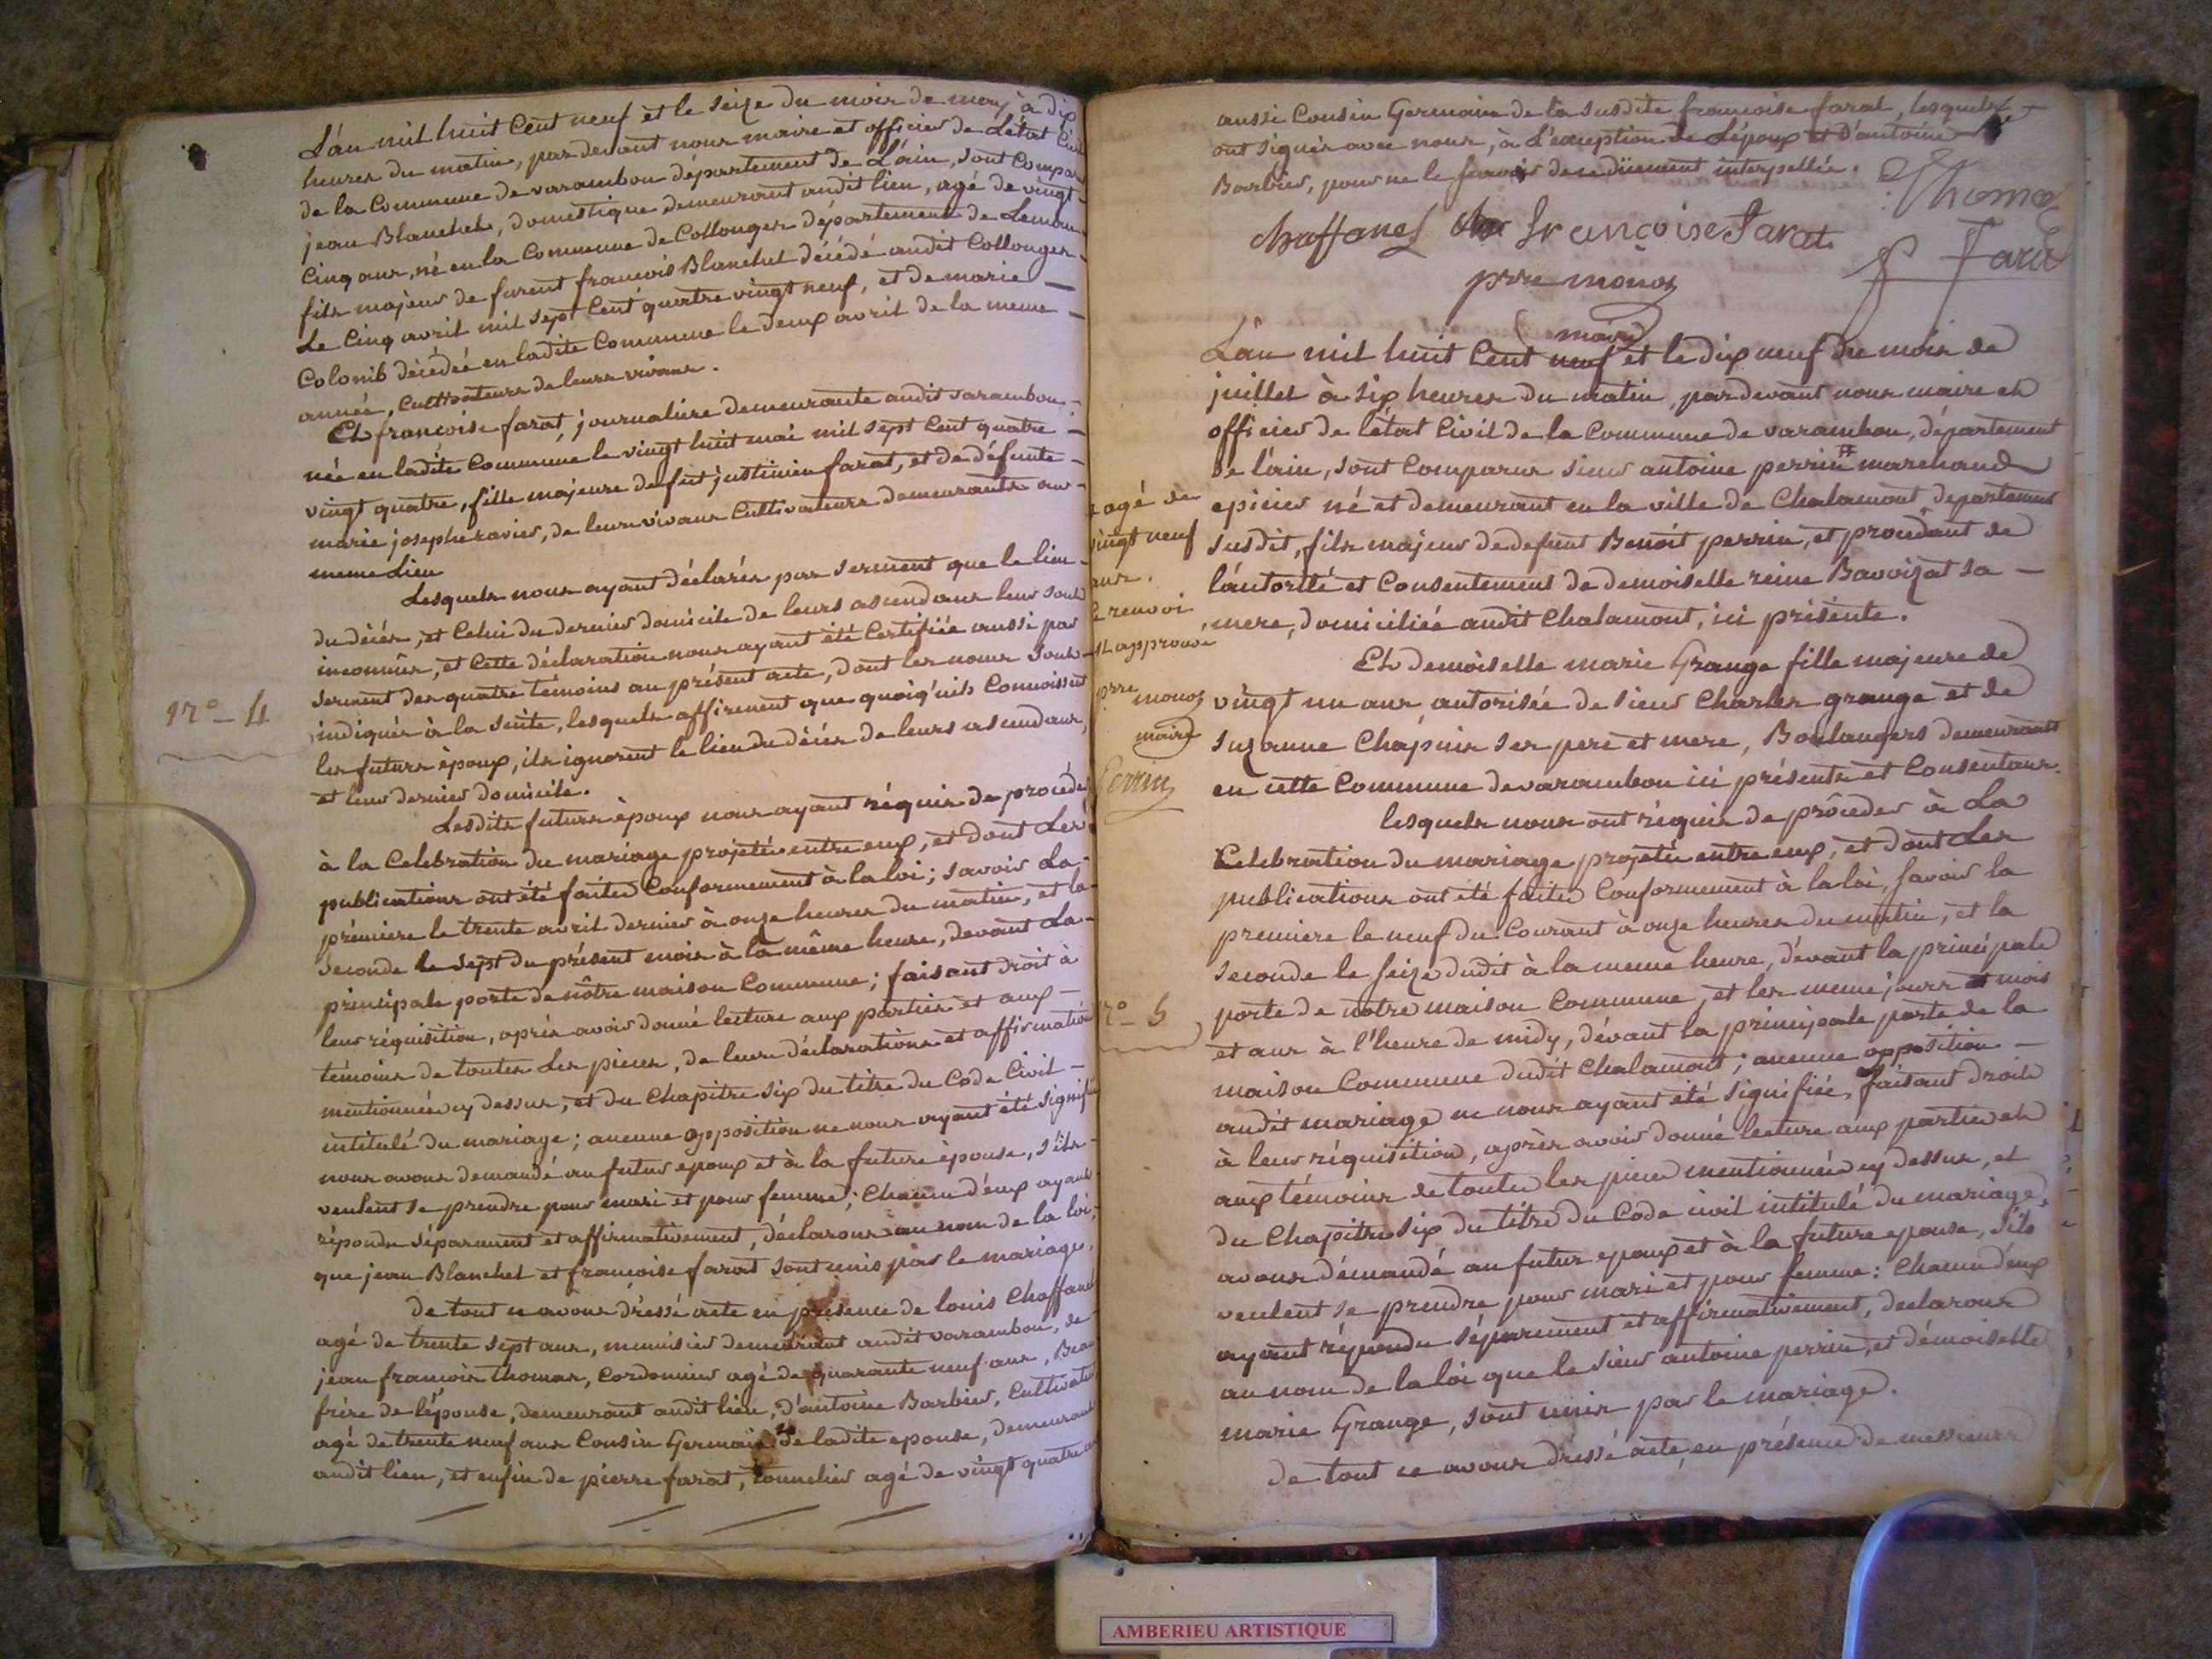 L'an mil huit Cent neuf et le seize du mois de may à dix
heures du matin, par devant nous maire et officier de L'état Civil
de la Commune de varambon département de L'ain, sont Comparus
jean Blanchet, domestique demeurant audit lieu, agé de vingt
Cinq ans, né en la Commune de Collonges département de Leman
fils majeur de furent francois Blanchet décédé audit Collonges
Le Cinq avril mil sept Cent quatre vingt neuf, et de marie
Colomb décédée en ladite Commune le deux avril de la meme
année, Cultivateurs de leurs vivans.
Et francoise farat, journaliere demeurante audit varambon
née en ladite Commune le vingt huit mai mil sept Cent quatre
vingt quatre, fille majeure de fut justinien farat, et de défunte
marie josephe ravier, de leurs vivans Cultivateurs demeurants au
meme Lieu
Lesquels nous ayant déclarés par serment que le lieu
du décés, et Celui du dernier domicile de leurs ascendans leur sont
inconnûs, et Cette déclaration nous ayant été Certifiée aussi par
serment des quatre témoins au présent acte, dont les noms sont
indiqués à la suite, lesquels affirment que quoiqu'ils Connoissent
les futurs époux, ils ignorent le lieu du décés de leurs ascendans,
et leur dernier domicile.
Lesdits futurs époux nous ayant réquis de procéder
à la Celebration du mariage projetée entre eux, et dont Les
publications ont été faites Conformement à la loi; savoir La
prémiere le trente avril dernier à onze heures du matin, et la
seconde le sept du présent mois à la même heure, devant La
principale porte de nôtre maison Commune; faisant droit à
leur réquisition, aprés avoir donné lecture aux parties et aux
témoins de toutes Les pieces, de leurs déclarations et affirmations
mentionnées cy dessus, et du Chapitre six du titre du Code Civil
intitulé du mariage; aucune opposition ne nous ayant été signifiée
nous avons demandé au futur epoux et à la future épouse, s'ils
veulent se prendre pour mari et pour femme; Chacun d'eux ayant
répondu séparement et affirmativement, déclarons au nom de la loi,
que jean Blanchet et francoise farat sont unis par le mariage,
de tout ce avons dréssé acte en présence de louis Chaffanel
agé de trente sept ans, menuisier demeurant audit varambon, de
jean francois thomas, Cordonnier agé de quarante neuf ans, Beau
frére de l'épouse, demeurant audit lieu, d'antoine Barbier, Cultivateur
agé de trente neuf ans Cousin Germain de ladite epouse, demeurant
audit lieu, et enfin de pierre farat, tonnelier agé de vingt quatre ans
N° 4
aussi Cousin Germain de la susdite francoise farat, lesquels
ont signés avec nous, à L'exception de L'époux et D'antoine
Barbier, pour ne le savoir de ce dûement interpellés.
Thomas
Chaffanel françoise Farat
P Farat
prre monoz
maire
L'an mil huit Cent neuf et le dix neuf du mois de
juillet à six heures du matin, pardevant nous maire et
officier de l'état Civil de la Commune de varambon, département
de l'ain, sont Comparus sieur antoine perrin # marchand
epicier né et demeurant en la ville de Chalamont departement
susdit, fils majeur de defunt Benoît perrin, et procedant de
l'autorité et Consentement de demoiselle reine Bavozat sa
mere, domiciliée audit Chalamont, ici présente.
Et demoiselle marie Grange fille majeure de
vingt un ans, autorisée de sieur Charles grange et de
suzanne Chapuis ses pere et mere, Boulangers demeurants
en cette Commune de varambon ici présents et Consentans.
lesquels nous ont réquis de procéder à La
Celebration du mariage projetée entre eux, et dont Les
publications ont été faites Conformement à la loi, savoir la
premiere le neuf du Courant à onze heures du matin, et la
seconde le seize dudit à la meme heure, devant la principale
porte de notre maison Commune, et les meme jours et mois
et ans à l'heure de midy, dévant la principale porte de la
maison Commune dudit Chalamont; aucune opposition
audit mariage ne nous ayant été signifiée, faisant droit
à leur réquisition, aprés avoir donné lecture aux parties et
aux témoins de toutes les pieces mentionnées cy dessus, et
du Chapitre six du titre du Code civil intitulé du mariage,
avons démandé au futur epoux et à la future epouse, s'ils
veulent se prendre pour mari et pour femme: Chacun d'eux
ayant répondu séparement et affirmativement, declarons
au nom de la loi que le sieur antoine perrin, et démoiselle
marie Grange, sont unis par le mariage.
de tout ce avons dréssé acte, en présence de messieurs
agé de
vingt neuf
ans.
renvoi
approuvé
prre monoz
maire
Perrin
N° 5
AMBERIEU ARTISTIQUE